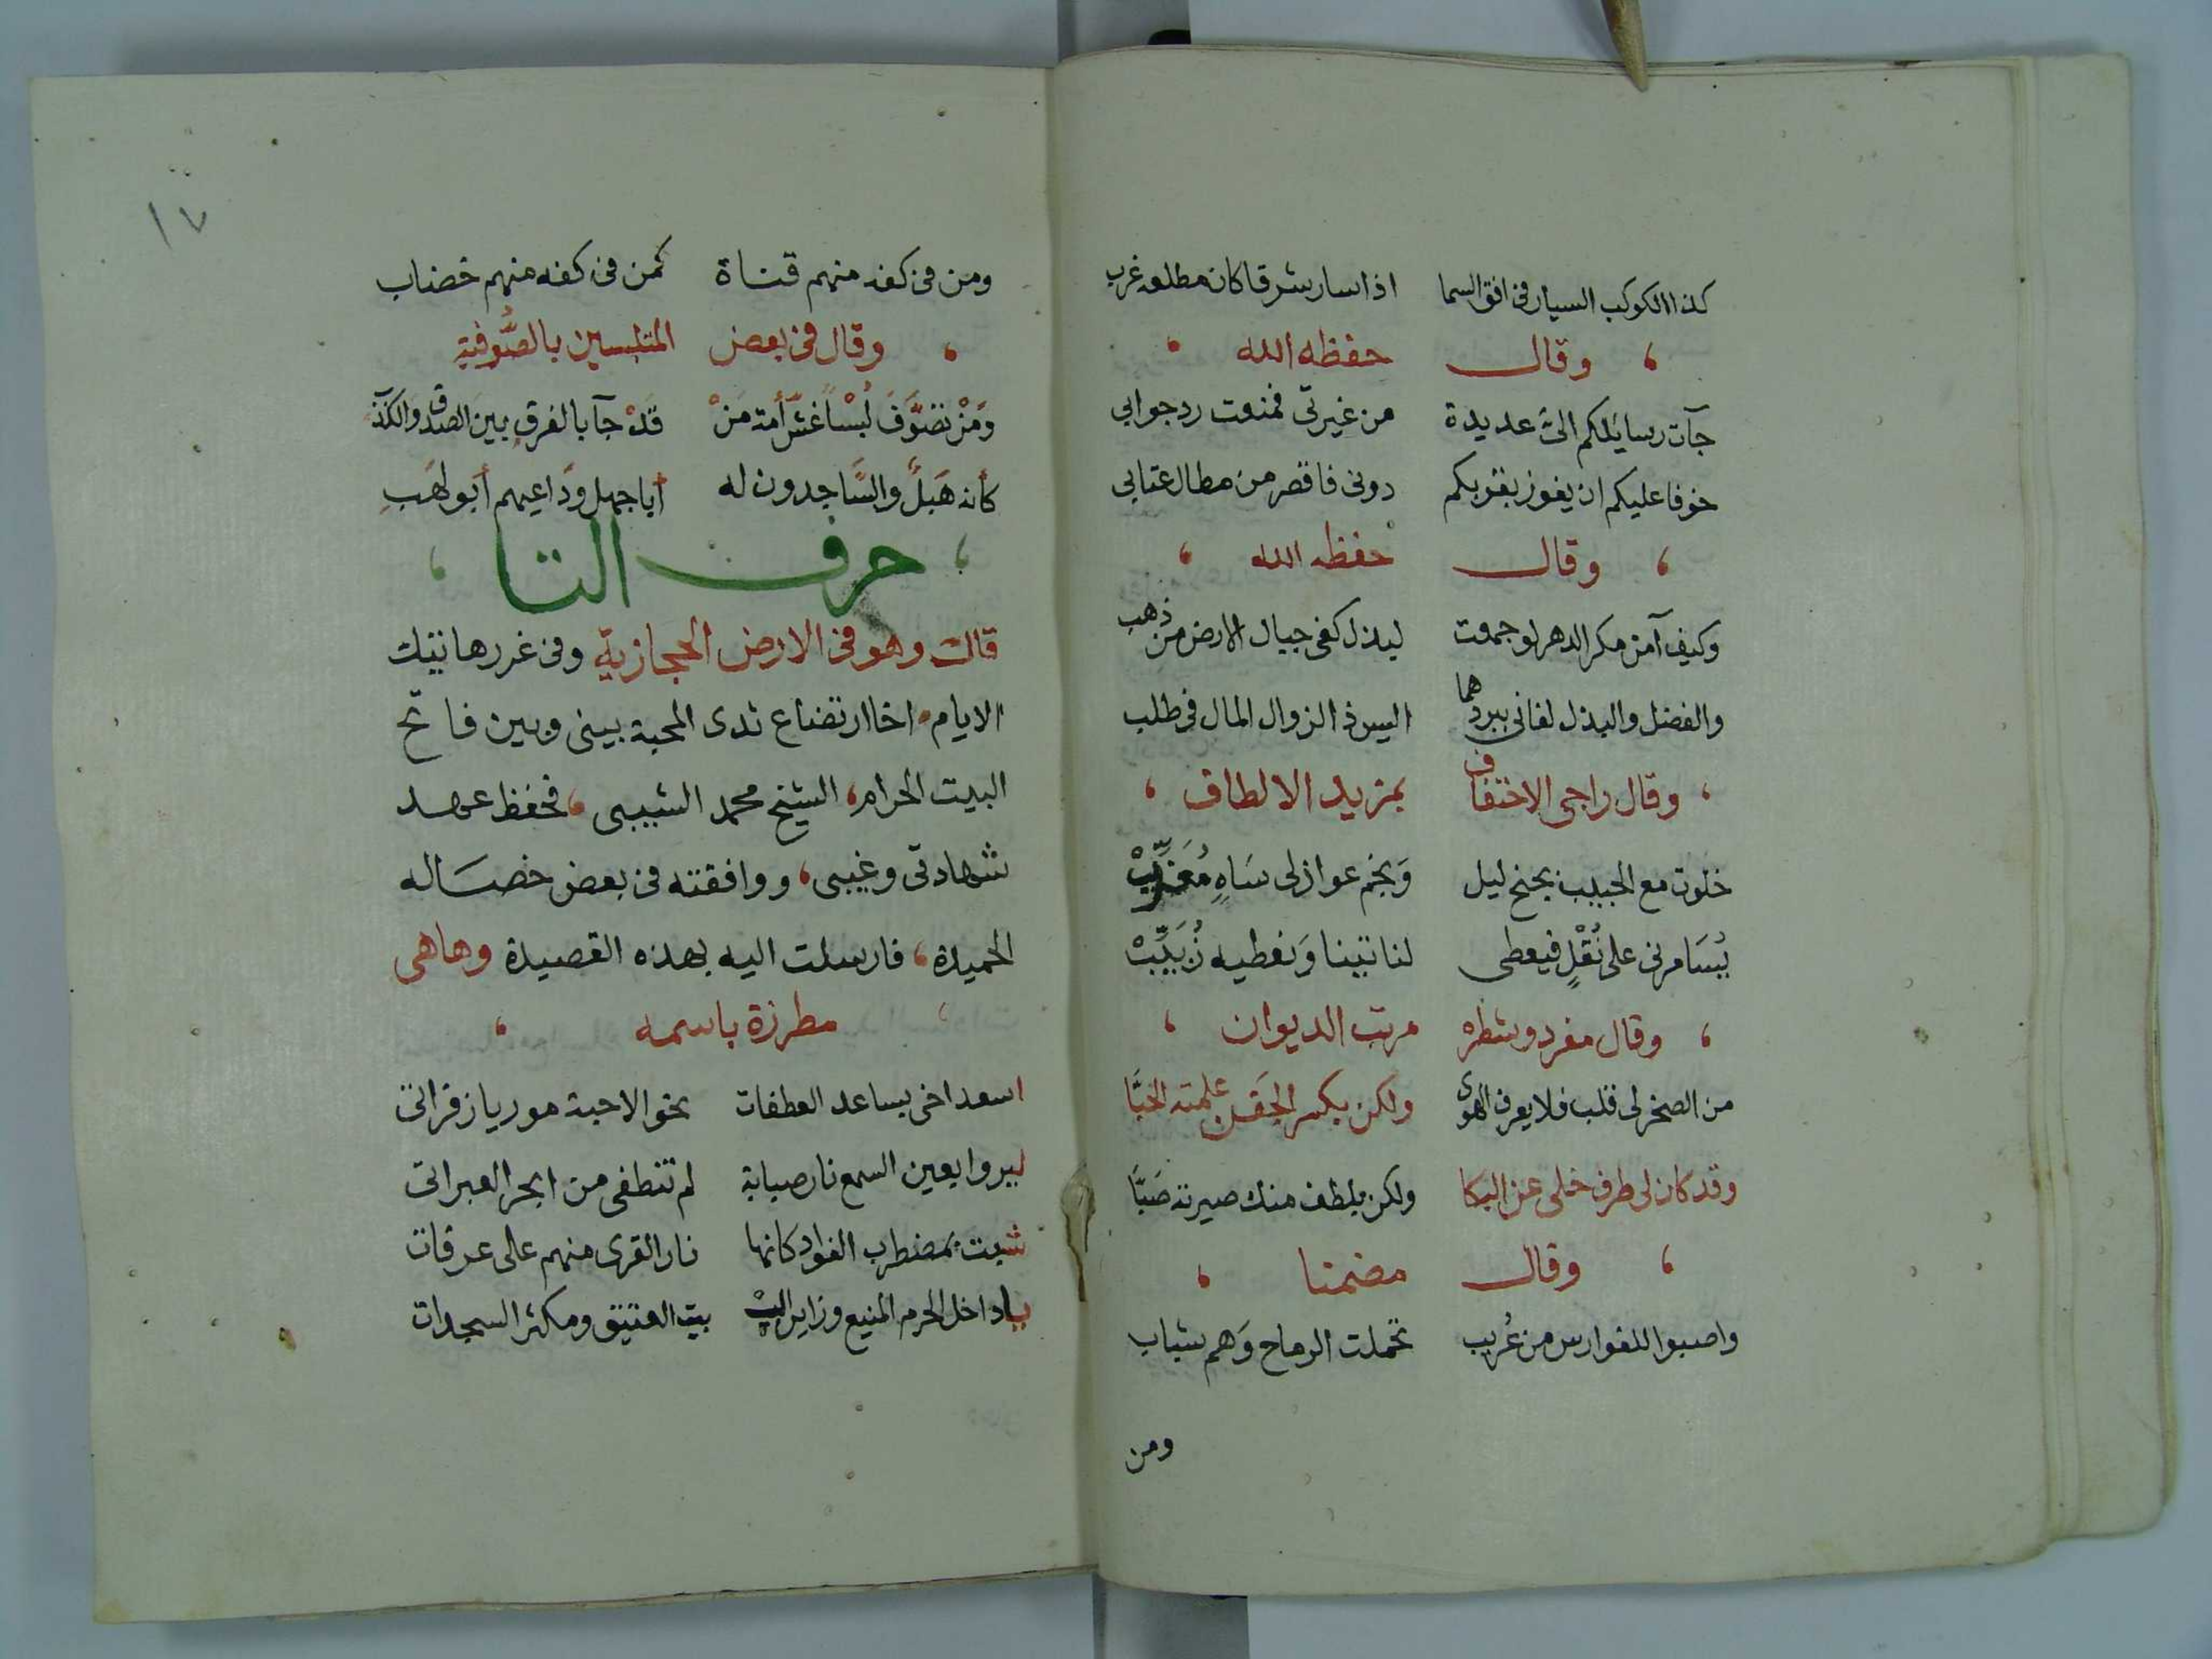 كذا الكوكب السيار فى افق السما اذا سار شرقا كان مطلعه غرب
، وقال حفظه الله ،
جآت رسايلكم الىّ عديدة من غيرتى فمنعت رد جوابى
خوفا عليكم ان يفوز بقربكم دونى فاقصر من مطال عتابى
، وقال حفظه الله ،
وكيف آمن مكر الدهر لو جمعت لبذل كفى جبال الارض من ذهب
والفضل والبذل لفانى ببردهما اليس ذا الزوال المال فى طلب
، وقال راجى الاختفاف بمزيد الالطاف ،
خلوت مع الحبيب بجنح ليل وَنجم عواذلى سَاهٍ مُغَرِّبْ
يُسَامرنى على نُقْلٍ فيعطى لنا تينا وَنعطيه زُبَيِّبْ
، وقال مفرد وشطره مرتب الديوان ،
من الصخر لى قلب فلا يعرف الهوى ولكن بكسر الجَفن علمته الحُبَّا
وقد كان لى طرف خلى عن البكا ولكن بلطف منك صيرته صَبَّا
، وقال مضمنا ،
واصبوا للفوارس من عُريب تحملت الرماح وَهم شباب
ومن
١٧
ومن فى كفه منهم قناة كمن فى كفه منهم خضاب
، وقال فى بعض المتلبسين بالصُّوفية
وَمَنْ تصَوَّفَ لُبْسًا غشَّ أمة مَنْ قَدْ جآ بالفرق بين الصدق والكذب
كأنه هَبَلٌ والسَّاجدون له أبا جهل وَداعيهم أبو لهَبِ
، حرف التا ،
قال وهو فى الارض الحجازية وفى غررها تيك
الايام، اخا ارتضاع ثدى المحبة بينى وبين فاتح
البيت الحرام، الشيخ محمد الشيبى، فحفظ عهد
شهادتى وغيبى، ووافقته فى بعض خصَاله
الحميدة، فارسلت اليه بهذه القصيدة وهاهى
، مطرزة باسمه ،
اسعد اخى بساعد العطفات نحو الاحبة موريا زفراتى
ليروا بعين السمع نار صبابة لم تنطفى من ابحر العبراتى
شبت بمضطرب الفواد كانها نار القرى منهم على عرفات
يا داخل الحرم المنيع وزاير الـ بيت العتيق ومكثر السجدات